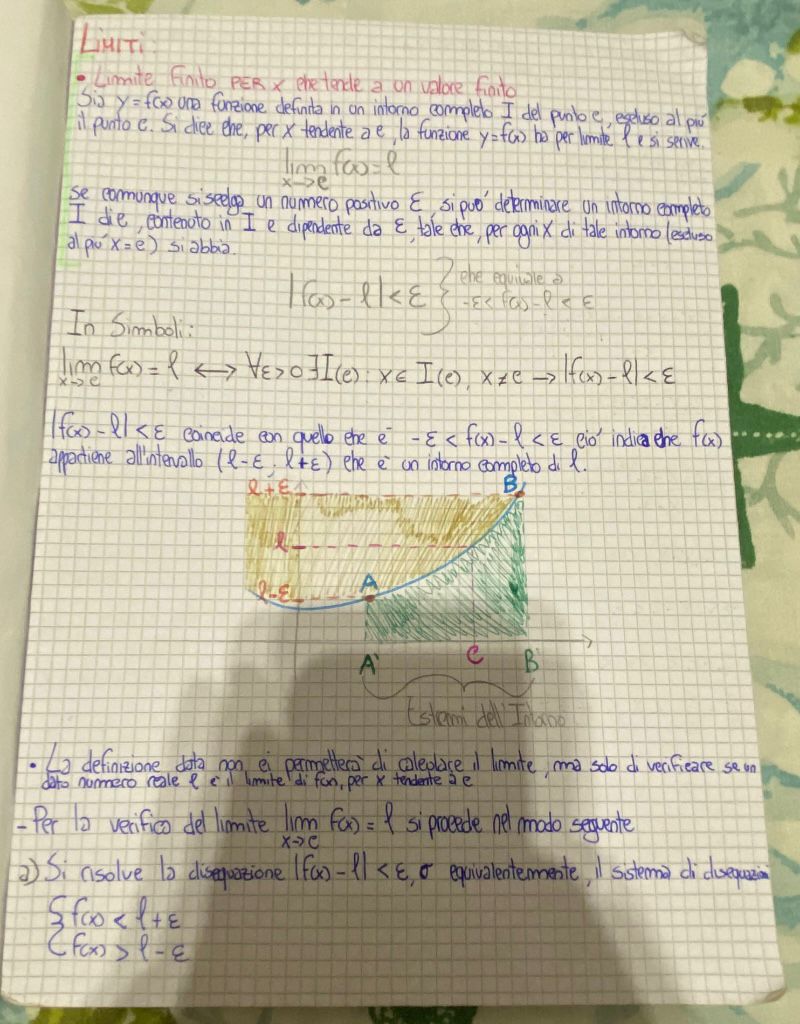 LIMITI:
• Limite Finito PER x che tende a un valore finito
Sia y = f(x) una funzione definita in un intorno completo I del punto c, escluso al più
il punto c. Si dice che, per x tendente a c, la funzione y = f(x) ha per limite l e si scrive.
lim f(x) = l
x→c
se comunque si scelga un numero positivo ε si può determinare un intorno completo
I di c, contenuto in I e dipendente da ε, tale che, per ogni x di tale intorno (escluso
al più x = c) si abbia.
|f(x) - l| < ε } che equivale a
-ε < f(x) - l < ε
In Simboli:
lim f(x) = l ⟷ ∀ε > 0 ∃ I(c) : x ∈ I(c), x ≠ c → |f(x) - l| < ε
x→c
|f(x) - l| < ε coincide con quello che è -ε < f(x) - l < ε ciò indica che f(x)
appartiene all'intervallo (l-ε ; l+ε) che è un intorno completo di l.
l+ε
B
l
l-ε
A
A'
C
B'
Estremi dell'Intorno
• La definizione data non ci permetterà di calcolare il limite, ma solo di verificare se un
dato numero reale l è il limite di f(x), per x tendente a c
- Per la verifica del limite lim f(x) = l si procede nel modo seguente
x→c
a) Si risolve la disequazione |f(x) - l| < ε, o equivalentemente, il sistema di disequazioni
{ f(x) < l + ε
f(x) > l - ε